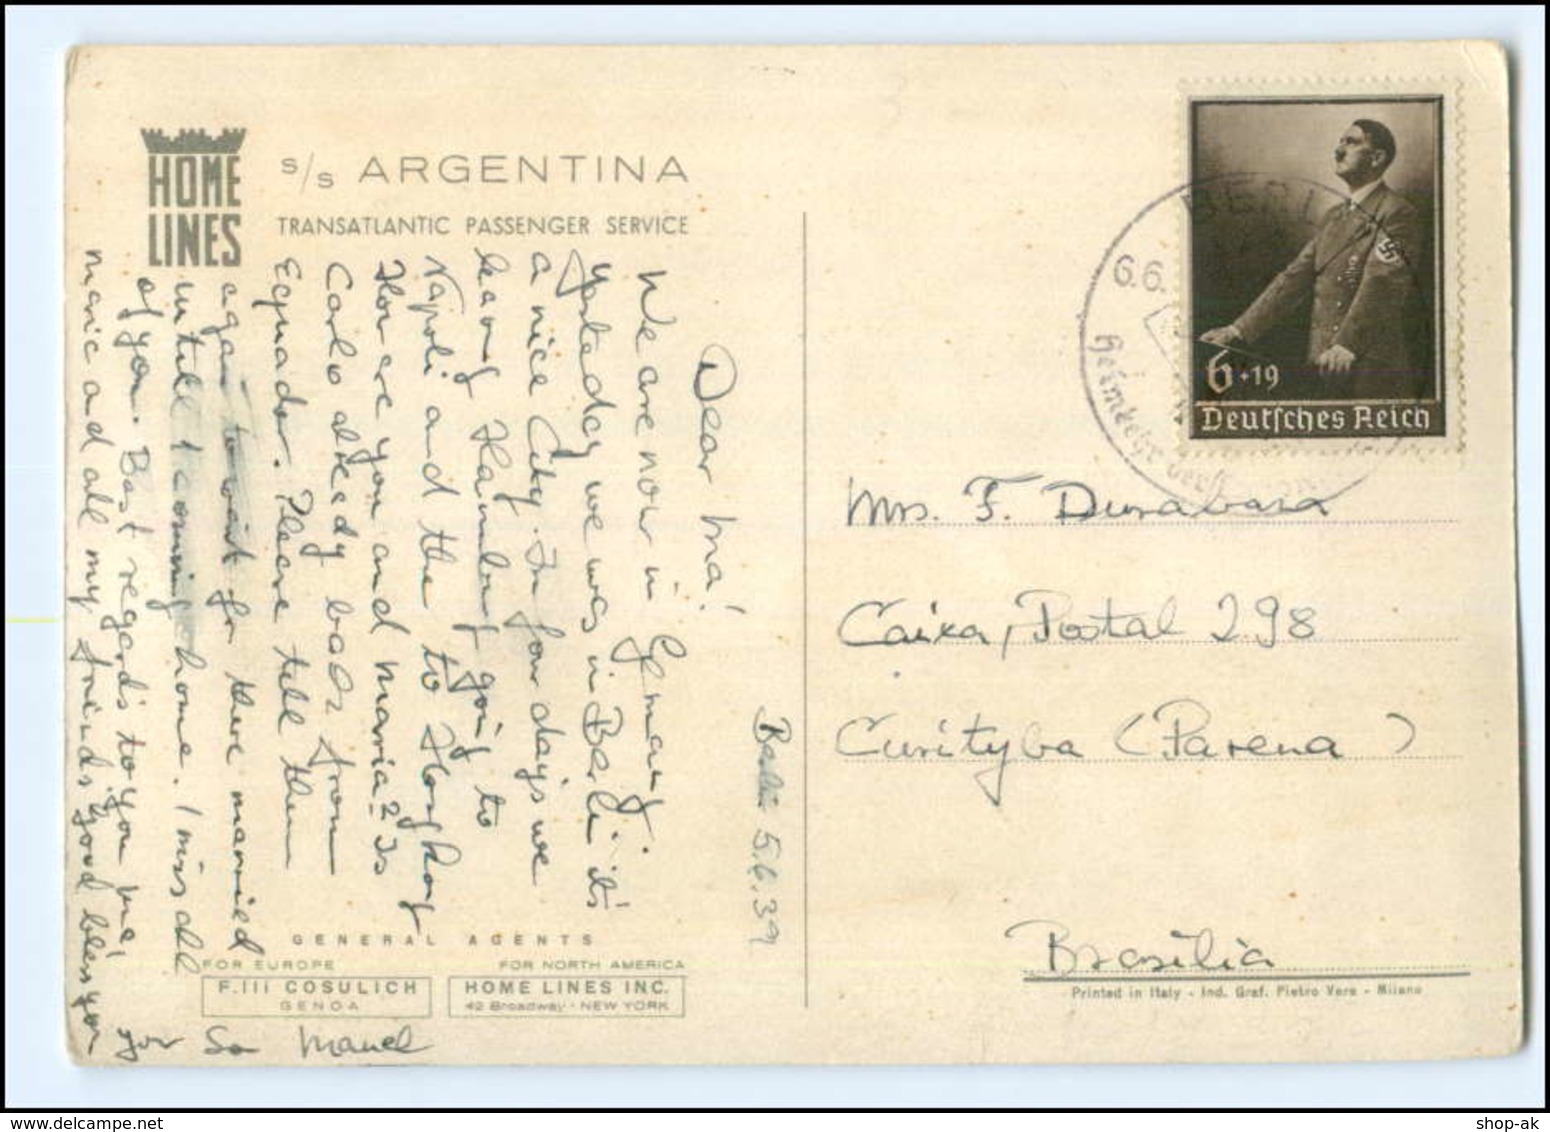 HOME
LINES
s/s ARGENTINA
TRANSATLANTIC PASSENGER SERVICE
Dear Ma!
We are now in Germany.
Yesteday we was in Berlin it's
a nice City. In four days we
leavy Hamburg going to
Napoli and the to Hongkong
How are you and Maria? Is
Carlo alredy back from
Equador. Please tell them
again to wait for there married
untill I coming home. I miss all
of you. Best regards to you Ma,
Marie and all my friends good bless you
your So Manuel
Berlin 5.6.39
GENERAL AGENTS
FOR EUROPE
F.lli COSULICH
GENOA
FOR NORTH AMERICA
HOME LINES INC.
42 Broadway - NEW YORK
BERLIN
6.6.
Heimkehr
6+19
Deutsches Reich
Mrs. F. Durabasa
Caixa, Postal 298
Curityba (Parena)
Brasilia
Printed in Italy - Ind. Graf. Pietro Vera - Milano
shop-ak